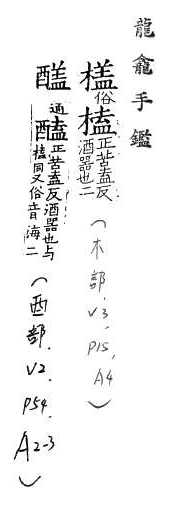 龍龕手鑑
俗榼正苦盍反酒器也二（木部.V3.P15.A4）
通醘正苦盍反酒器也与榼同又俗音海二（酉部.V2.P54.A2-3）